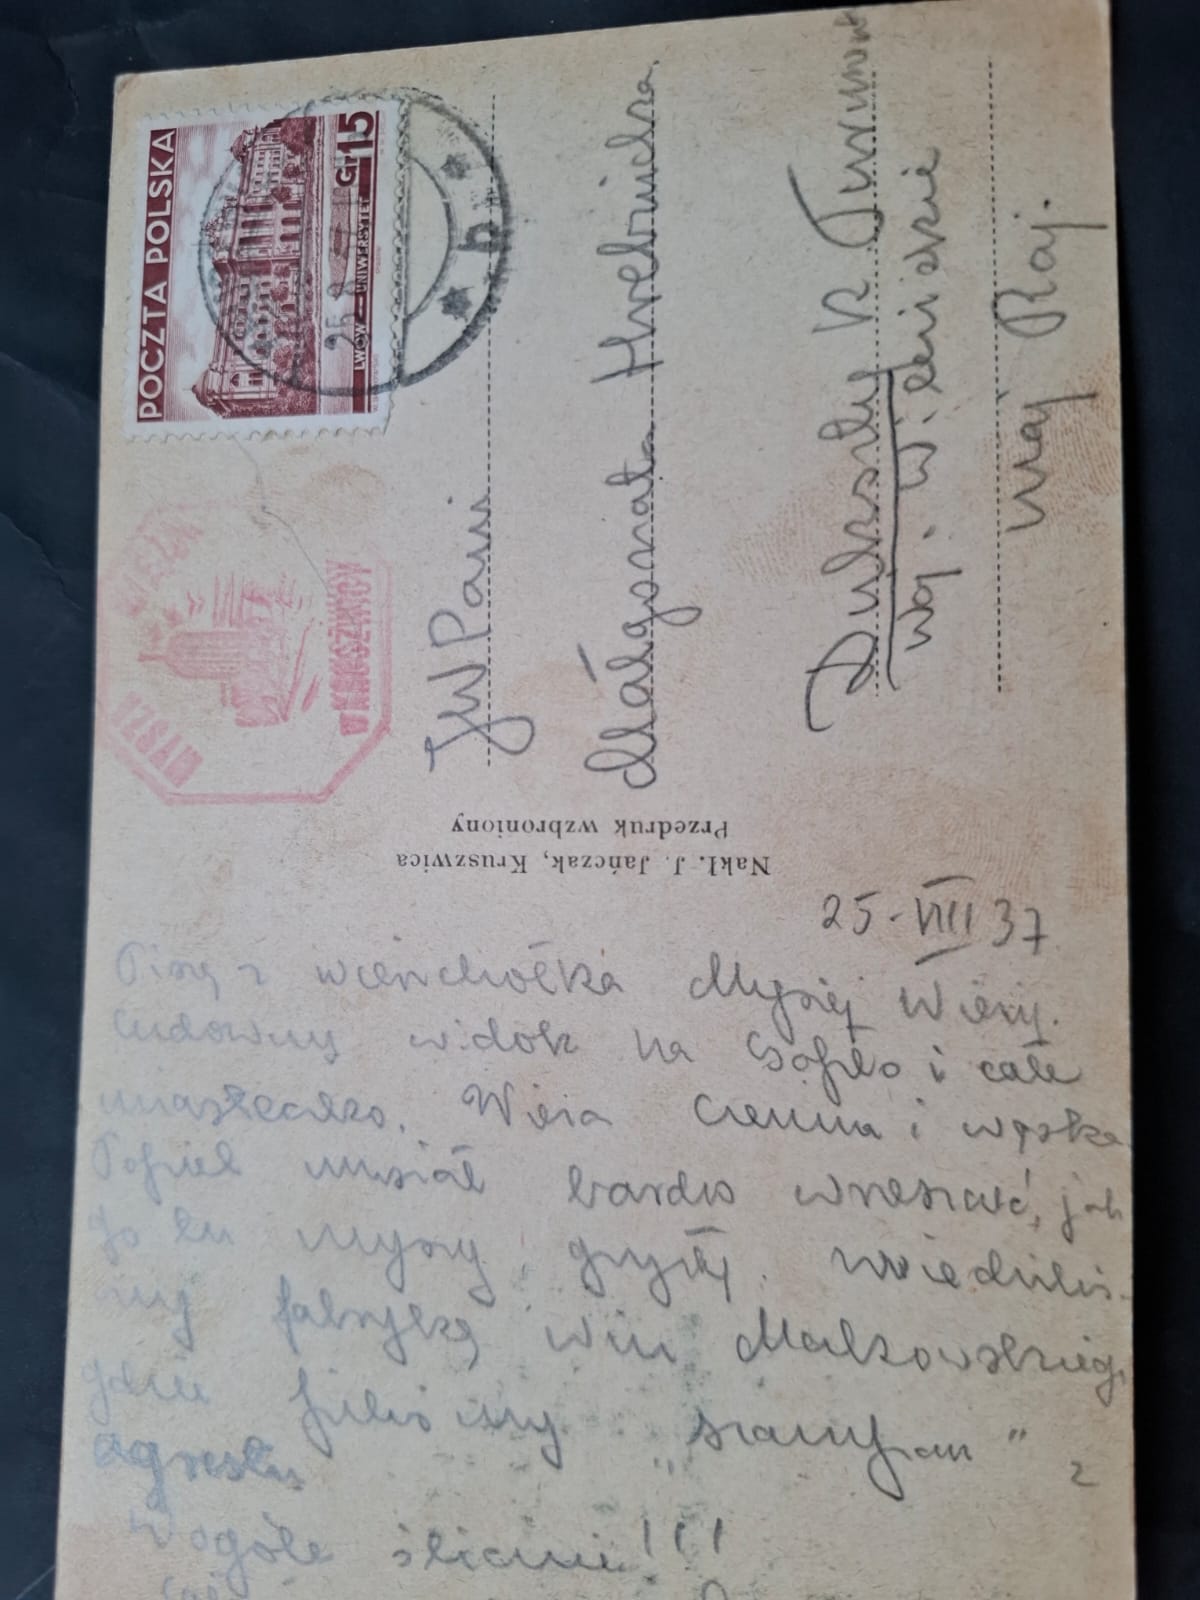 POCZTA POLSKA
Gr 15
LWÓW — UNIWERSYTET
25. 8
b
MYSZA WIEŻA
W KRUSZWICY
JWPani
Małgorzata Hrebnicka
Dukszty k Turmont
woj. Wileńskie
maj Raj.
Nakł. J. Jańczak, Kruszwica
Przedruk wzbroniony
25-VIII 37
Piszę z wierzchołka Mysiej Wieży.
Cudowny widok na Gopło i całe
miasteczko. Wieża ciemna i wąska
Popiel musiał bardzo wrzeszczeć, jak
go tu myszy gryzły. Zwiedziliś-
my fabrykę win Makowskiego,
gdzie piliśmy "szampan" z
agrestu
Wogóle ślicznie!!!